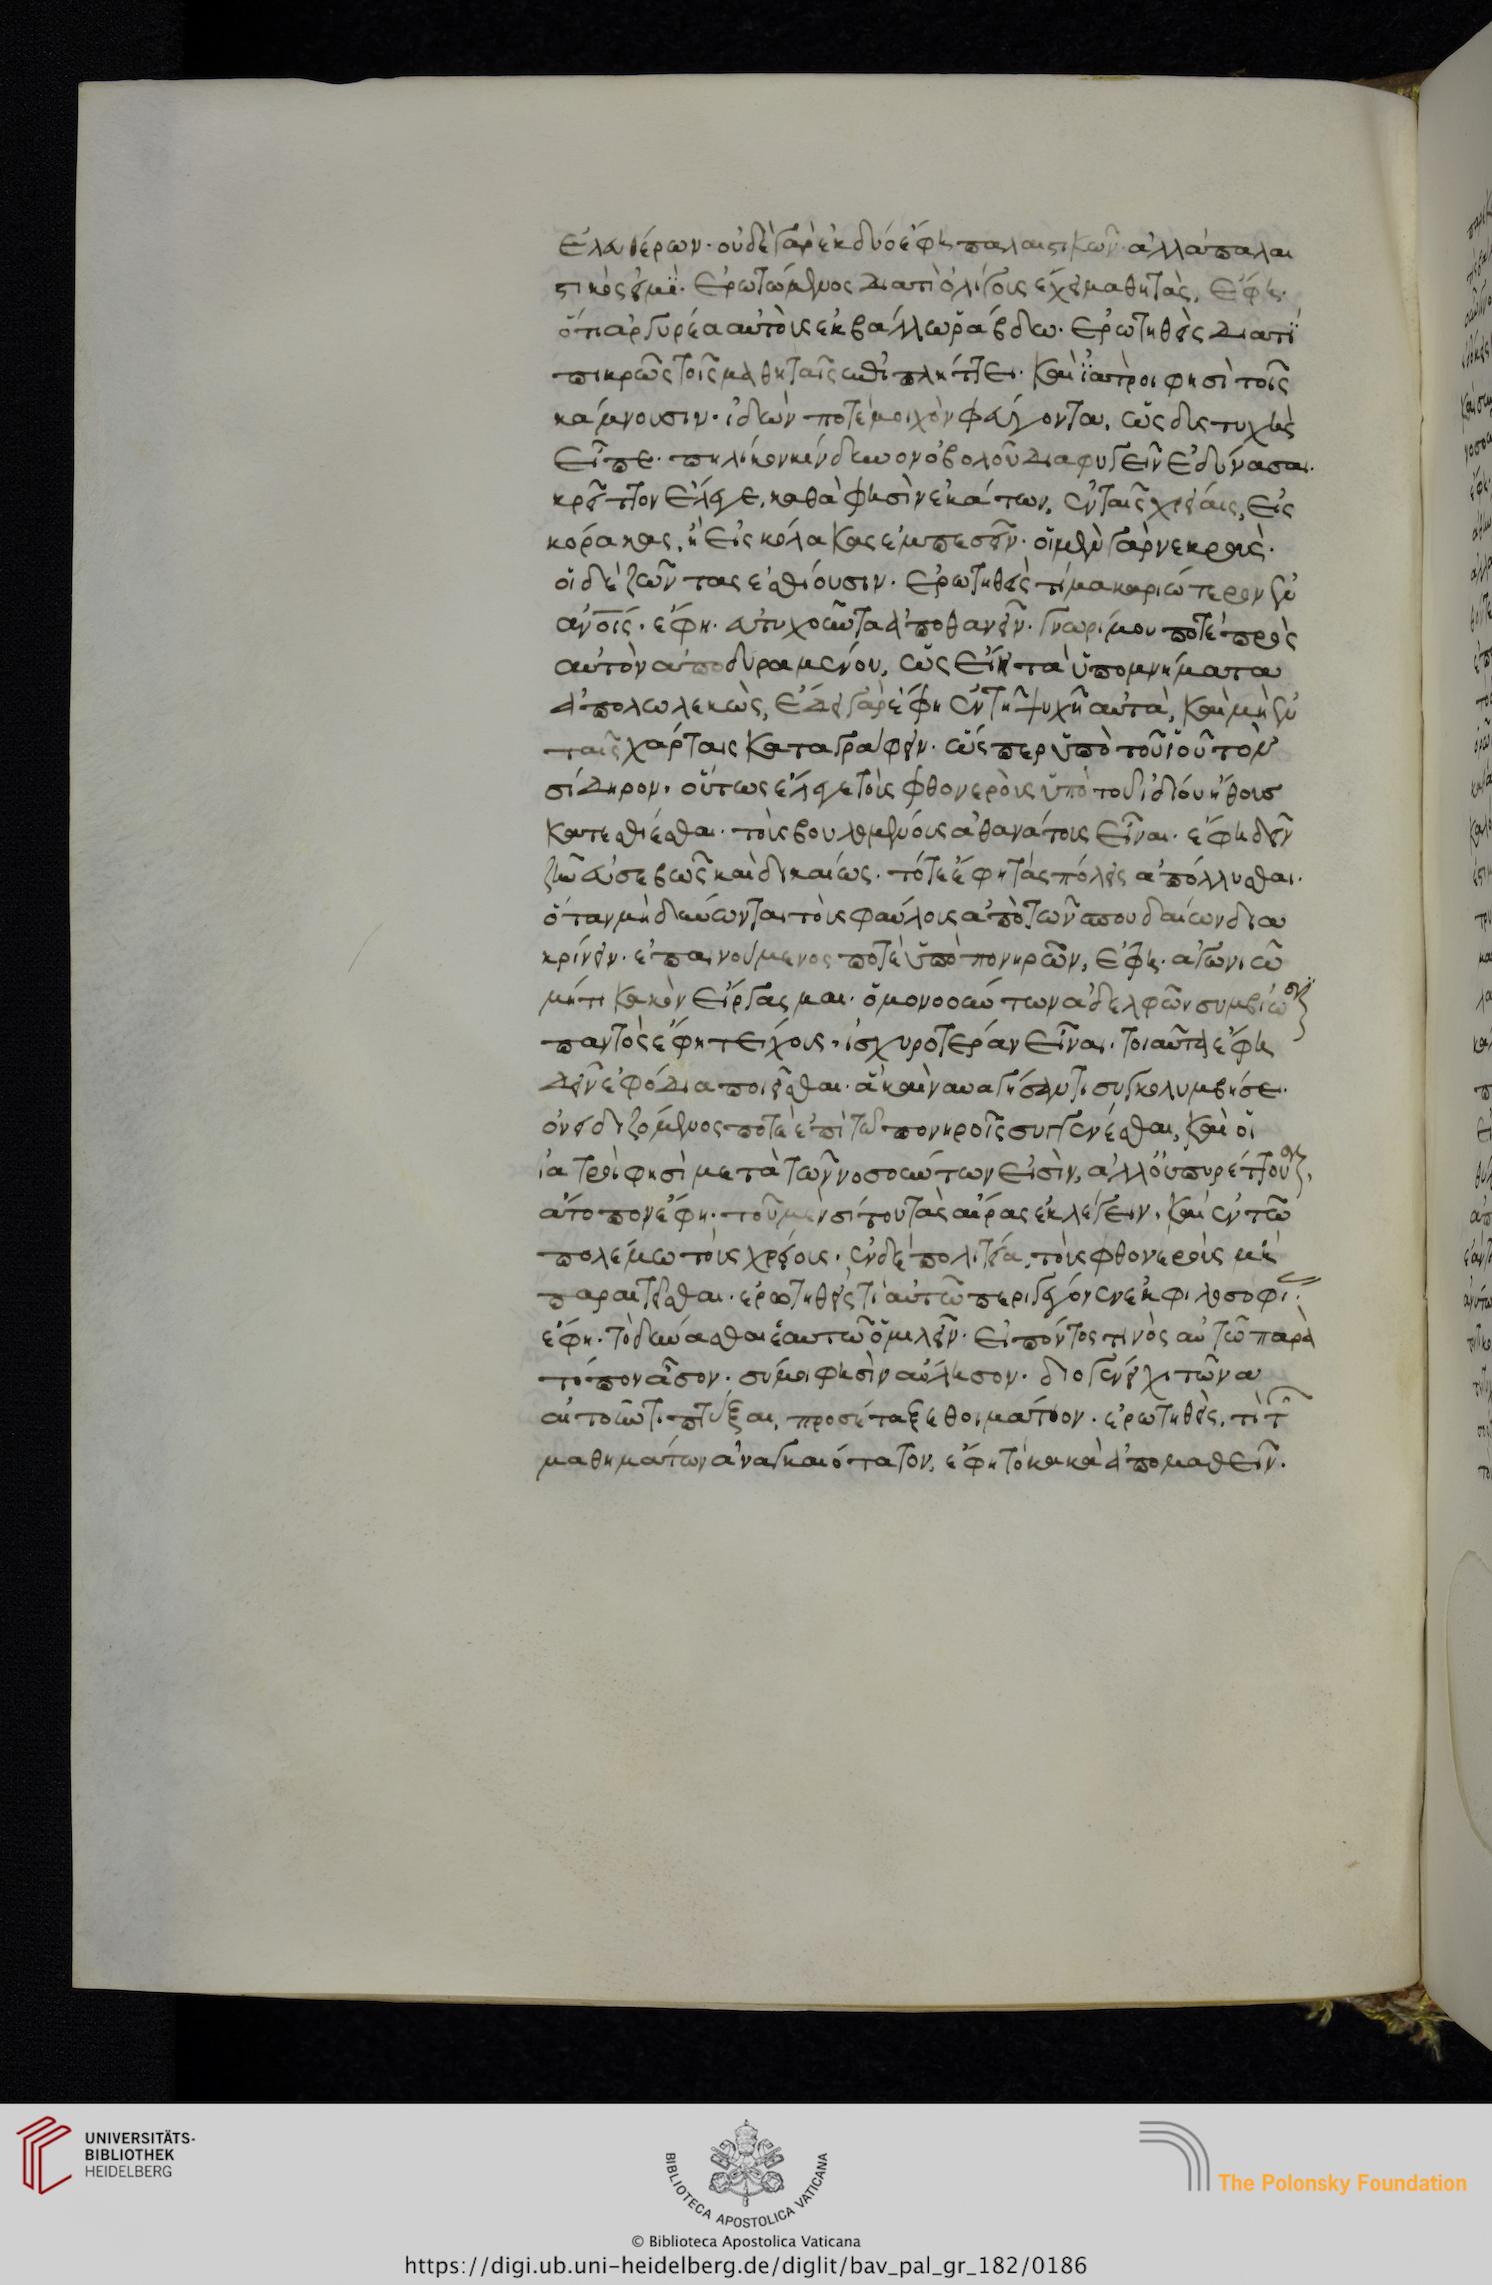 ἐλευθέρων· οὐδὲ γὰρ ἐκ δύο ἔφη παλαιστικῶν· ἀλλὰ παλαι
στικὸς εἰμί· ἐρωτώμενος διατί ὀλίγους ἔχει μαθητὰς, ἔφη·
ὅτι ἀργυρέα αὐτοὺς ἐκβάλλω ῥάβδω· ἐρωτηθεὶς διατί
πικρῶς τοῖς μαθηταῖς ἐπιπλήττει· καὶ ἰατροι φησὶ τοῖς
κάμνουσιν· ἰδὼν ποτὲ μοιχὸν φεύγοντα, ὦ δυστυχὴς
εἶπε· πηλίκον κίνδυνον ὀβολοῦ διαφυγεῖν ἐδύνασαι·
κρεῖττον ἔλεγε, καθά φησὶν ἑκάτων, ἐν ταῖς χρείαις, εἰς
κόρακας, ἢ εἰς κόλακας ἐμπεσεῖν· οἱ μὲν γὰρ νεκροὺς·
οἱ δὲ ζῶντας ἐσθίουσιν· ἐρωτηθεὶς τί μακαριώτερον ἐν
ἀνοις· ἔφη· εὐτυχοῦντα ἀποθανεῖν· γνωρίμου ποτὲ πρὸς
αὐτὸν ἀποδυραμενου, ὡς εἴη τὰ ὑπομνήματα
ἀπολωλεκὼς, ἔδει γὰρ ἔφη ἐν τῇ ψυχῇ αὐτὰ, καὶ μὴ ἐν
ταῖς χάρταις καταγράφειν· ὥσπερ ὑπὸ τοῦ ἰοῦ τὸν
σίδηρον· οὕτως ἔλεγε τοὺς φθονεροὺς ὑπὸ του ἰδίου ἤθους
κατεσθίεσθαι· τοὺς βουλομένους ἀθανάτους εἶναι· ἔφη δεῖν
ζῆν εὐσεβῶς καὶ δικαίως· τότε ἔφη τὰς πόλεις ἀπόλλυσθαι·
ὅταν μὴ δύνωνται τοὺς φαύλους ἀπὸ τῶν σπουδαίων δια
κρίνειν· ἐπαινούμενος ποτὲ ὑπὸ πονηρῶν, ἔφη· ἀγωνιῶ
μήτι κακὸν εἴργασμαι· ὁμονοούντων ἀδελφῶν συμβίωσιν
παντὸς ἔφη τείχους· ἰσχυροτεράν εἶναι· τοιαῦτα ἔφη
δεῖν ἐφόδια ποιεῖσθαι· ἃ καὶ ναυαγήσαντι συγκολυμβήσει·
ὀνειδιζόμενος ποτὲ ἐπὶ τῶ πονηροῖς συγγενέσθαι, καὶ οἱ
ἰατροί φησὶ μετὰ τῶν νοσούντων εἰσὶν, ἀλλ' οὐ πυρέττουσιν·
ἄτοπον ἔφη· τοῦ μὲν σίτου τὰς αἴρας ἐκλέγειν· καὶ ἐν τῶ
πολέμω τοὺς χρείους· ἐν δὲ πολιτεία, τοὺς φθονεροὺς μὴ
παραιτεῖσθαι· ἐρωτηθεὶς τί αὐτῶ περιγέγονεν ἐκ φιλοσοφί·
ἔφη· τὸ δύνασθαι ἑαυτῶ ὁμιλεῖν· εἰπόντος τινὸς αὐτῶ παρὰ
τόπον ἆσον· σύ μοι φησὶν αὔλησον· διογένει χιτῶνα
αἰτοῦντι πτύξαι, προσέταξε θοιμάτιον· ἐρωτηθεὶς, τί τ
μαθημάτων ἀναγκαιότατον, ἔφη τὸ κακὰ ἀπομαθεῖν·
UNIVERSITÄTS-
BIBLIOTHEK
HEIDELBERG
BIBLIOTECA APOSTOLICA VATICANA
The Polonsky Foundation
© Biblioteca Apostolica Vaticana
https://digi.ub.uni-heidelberg.de/diglit/bav_pal_gr_182/0186